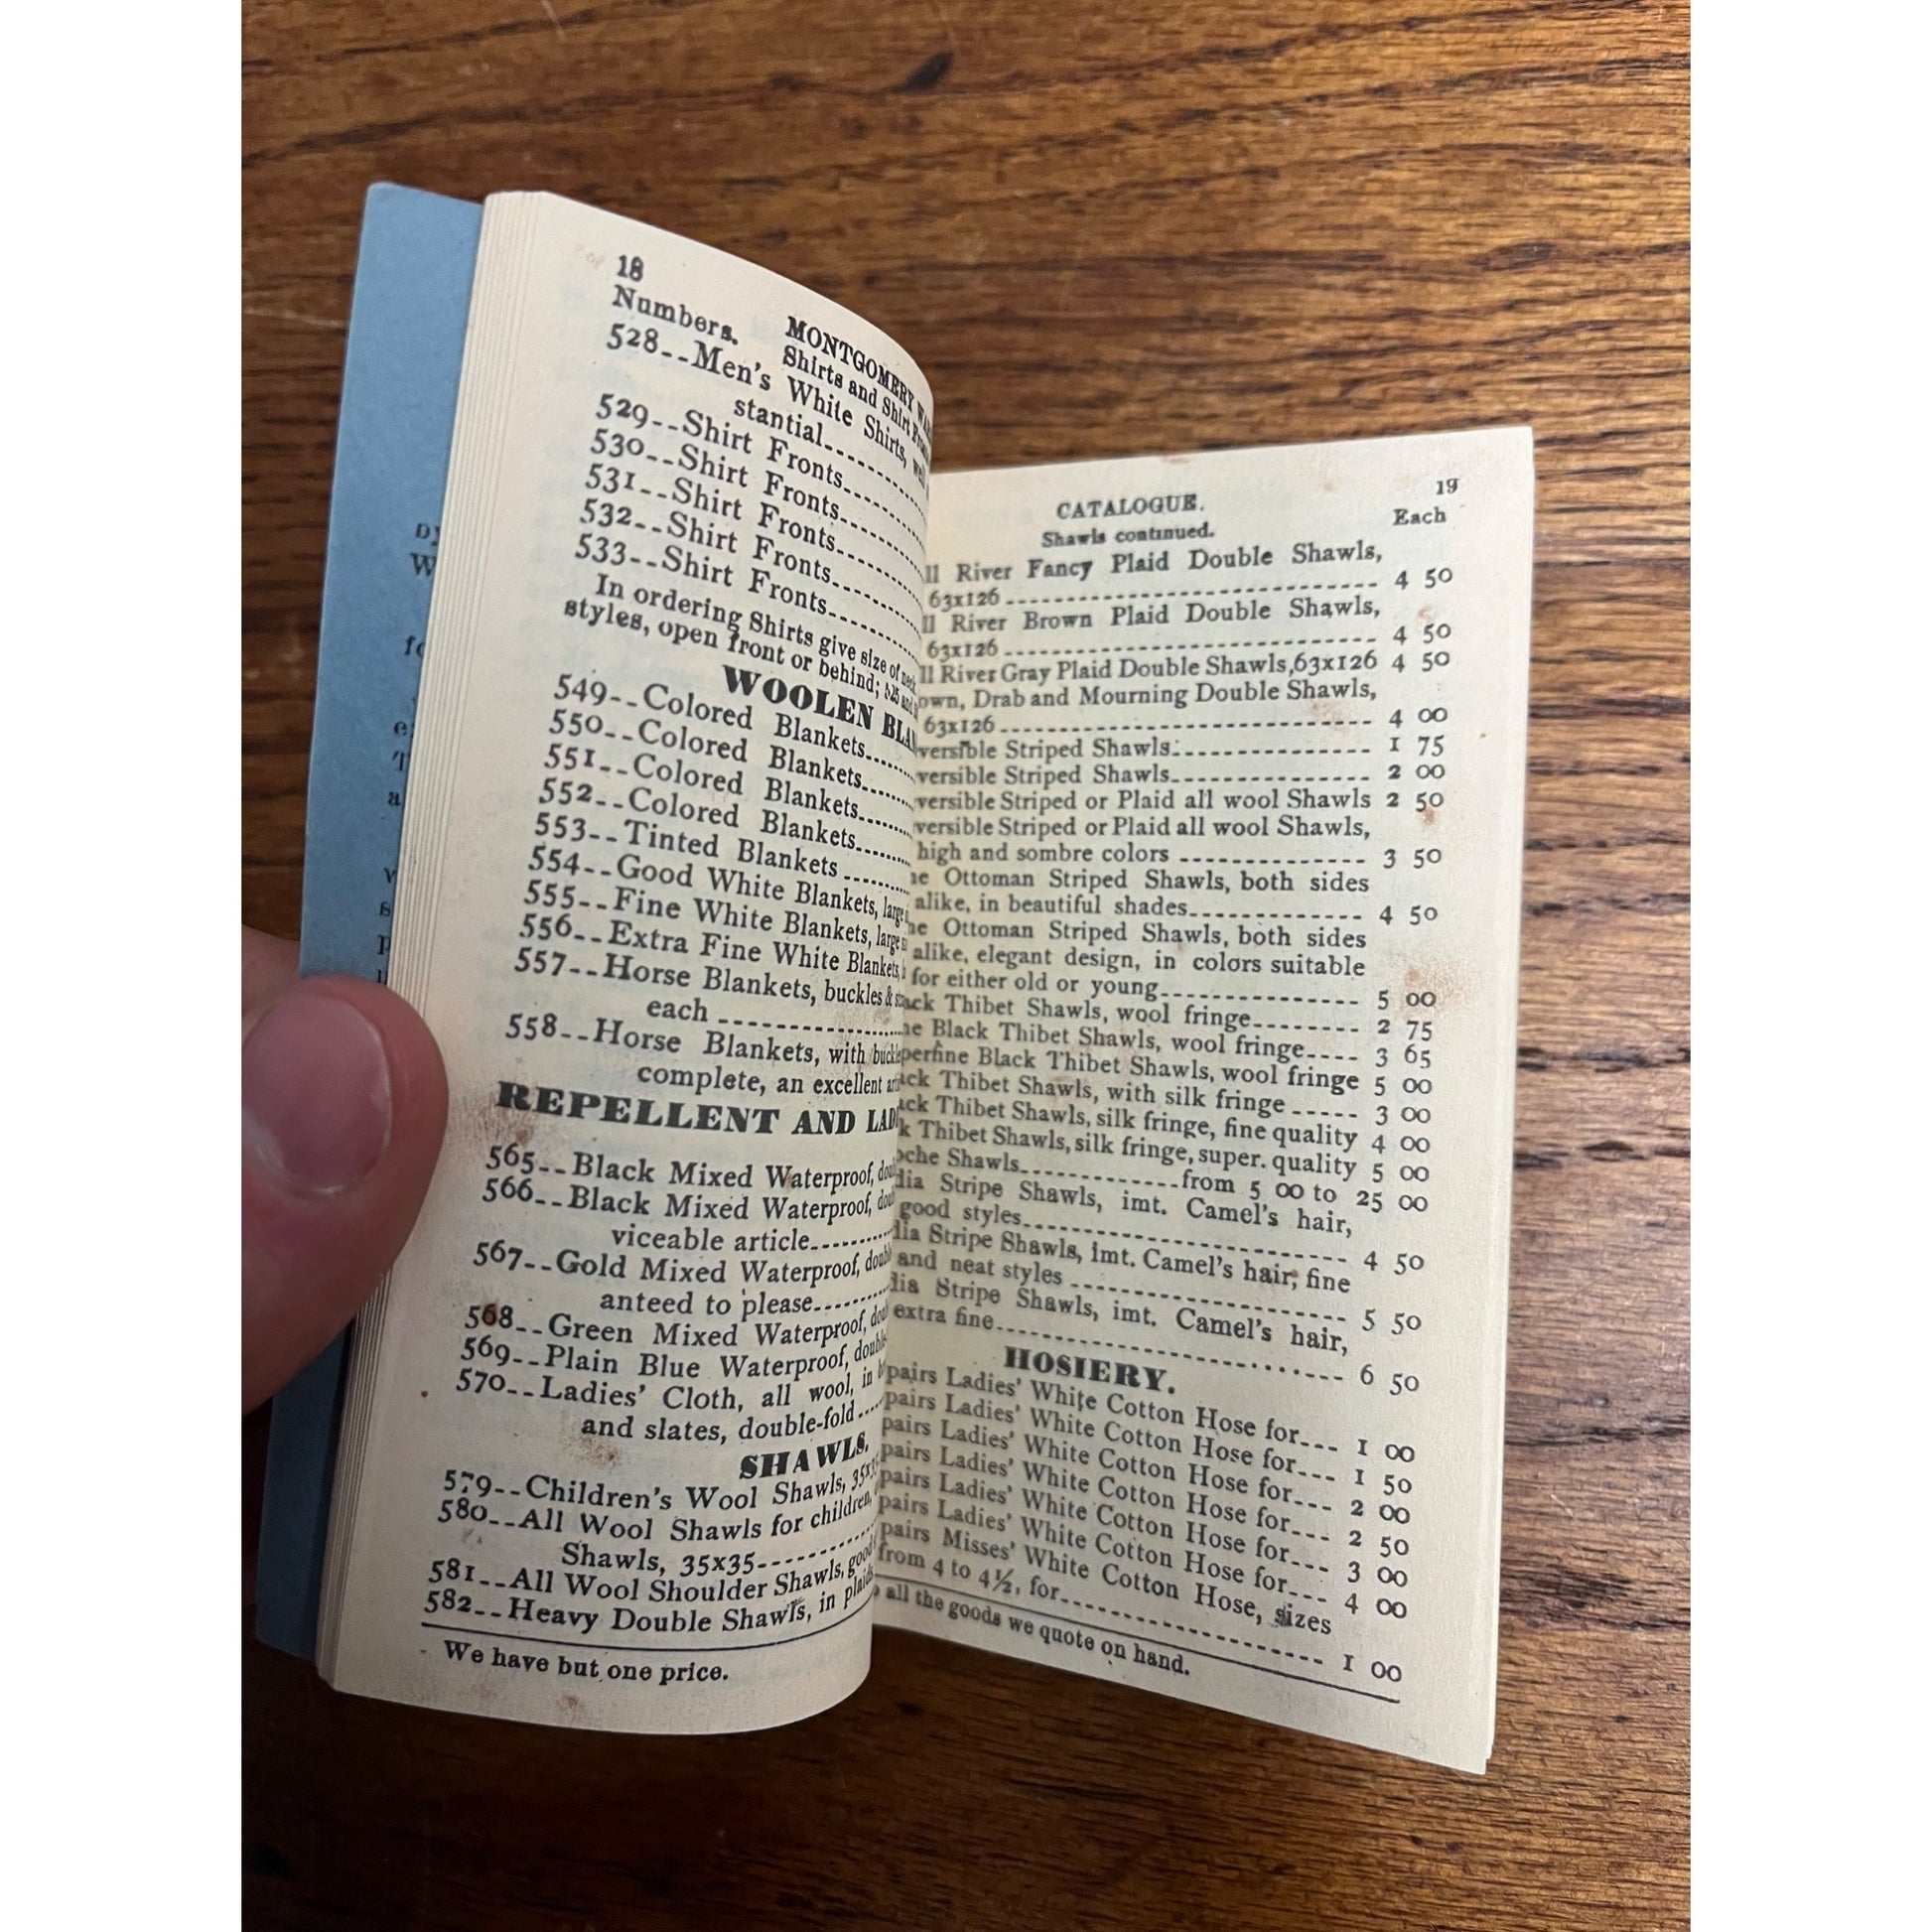 18
MONTGOMERY
Numbers. Shirts and Shirt
528--Men's White Shirts, well
stantial
529--Shirt Fronts
530--Shirt Fronts
531--Shirt Fronts
532--Shirt Fronts
533--Shirt Fronts
In ordering Shirts give size of neck
styles, open front or behind;
WOOLEN
549--Colored Blankets
550--Colored Blankets
551--Colored Blankets
552--Colored Blankets
553--Tinted Blankets
554--Good White Blankets, large
555--Fine White Blankets, large
556--Extra Fine White Blankets,
557--Horse Blankets, buckles &
each
558--Horse Blankets, with
complete, an excellent
REPELLENT AND
565--Black Mixed Waterproof,
566--Black Mixed Waterproof,
viceable article
567--Gold Mixed Waterproof,
anteed to please
568--Green Mixed Waterproof,
569--Plain Blue Waterproof,
570--Ladies' Cloth, all wool, in
and slates, double-fold
SHAWLS.
579--Children's Wool Shawls,
580--All Wool Shawls for children,
Shawls, 35x35
581--All Wool Shoulder Shawls,
582--Heavy Double Shawls, in
We have but one price.
CATALOGUE. 19
Shawls continued. Each
River Fancy Plaid Double Shawls,
63x126 4 50
River Brown Plaid Double Shawls,
63x126 4 50
River Gray Plaid Double Shawls, 63x126 4 50
Drab and Mourning Double Shawls,
63x126 4 00
Striped Shawls 1 75
Striped Shawls 2 00
Striped or Plaid all wool Shawls 2 50
Striped or Plaid all wool Shawls,
high and sombre colors 3 50
Ottoman Striped Shawls, both sides
alike, in beautiful shades 4 50
Ottoman Striped Shawls, both sides
alike, elegant design, in colors suitable
for either old or young 5 00
Thibet Shawls, wool fringe 2 75
Black Thibet Shawls, wool fringe 3 65
Black Thibet Shawls, wool fringe 5 00
Thibet Shawls, with silk fringe 3 00
Thibet Shawls, silk fringe, fine quality 4 00
Thibet Shawls, silk fringe, super. quality 5 00
Shawls from 5 00 to 25 00
Stripe Shawls, imt. Camel's hair,
good styles 4 50
Stripe Shawls, imt. Camel's hair, fine
and neat styles 5 50
Stripe Shawls, imt. Camel's hair,
extra fine 6 50
HOSIERY.
pairs Ladies' White Cotton Hose for 1 00
pairs Ladies' White Cotton Hose for 1 50
pairs Ladies' White Cotton Hose for 2 00
pairs Ladies' White Cotton Hose for 2 50
pairs Ladies' White Cotton Hose for 3 00
pairs Ladies' White Cotton Hose for 4 00
pairs Misses' White Cotton Hose, sizes
from 4 to 4½, for 1 00
all the goods we quote on hand.